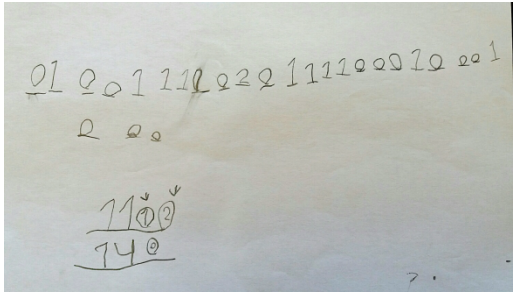 01 0 0 1 1 1 1 0 2 0 1 1 1 1 0 0 0 1 0 0 0 1
0 0 0
11①②
140